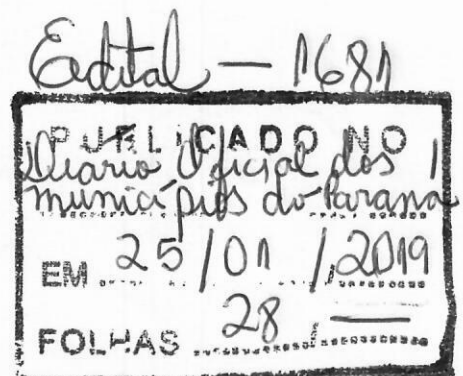 Edital — 1681
PUBLICADO NO
Diário Oficial dos
municípios do Paraná
EM 25/01/2019
FOLHAS 28, —